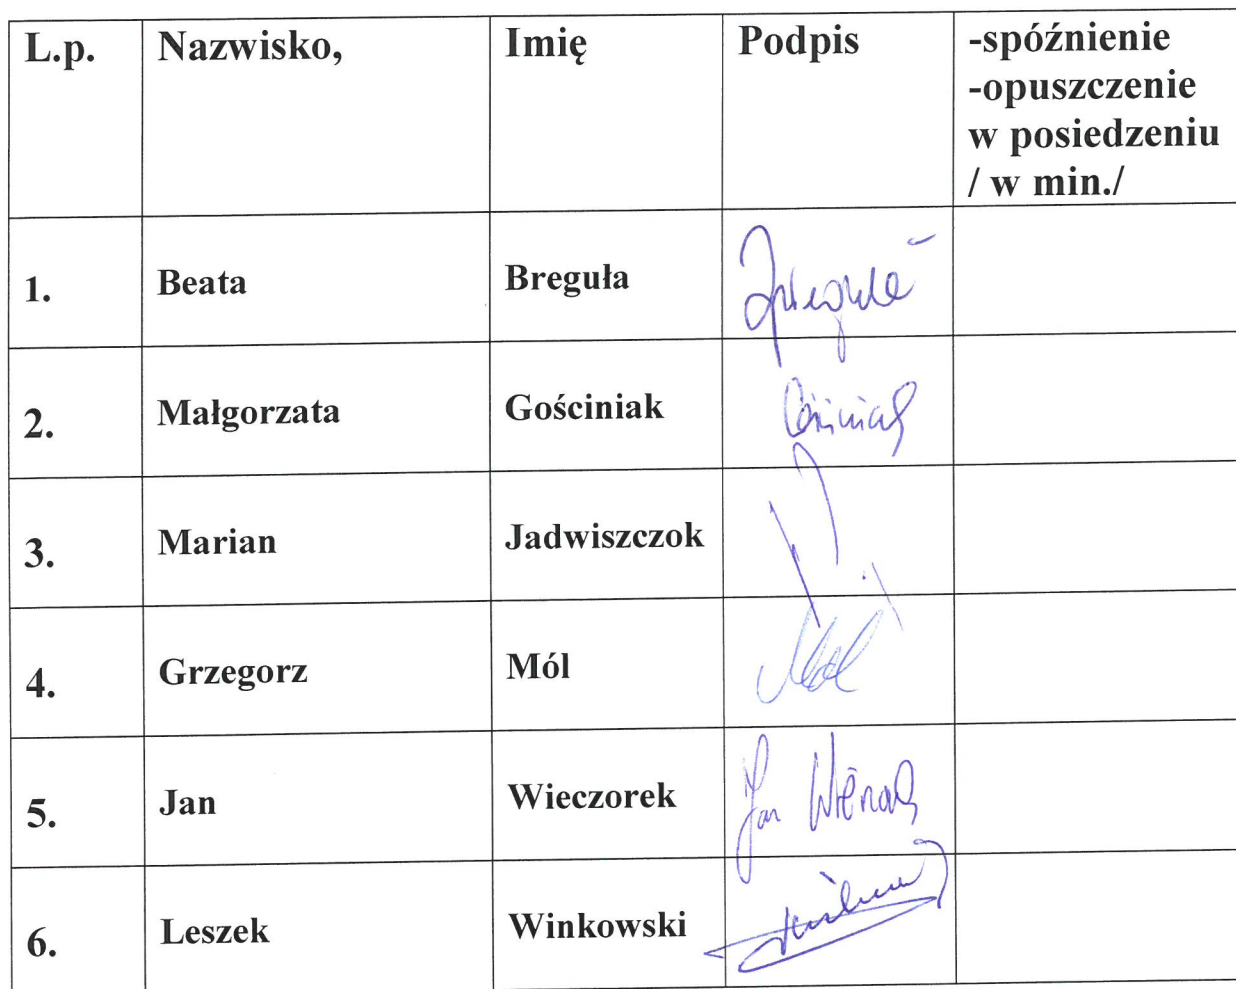 L.p. Nazwisko, Imię Podpis -spóźnienie
-opuszczenie
w posiedzeniu
/ w min./
1. Beata Breguła
2. Małgorzata Gościniak
3. Marian Jadwiszczok
4. Grzegorz Mól Mól
5. Jan Wieczorek Jan
6. Leszek Winkowski